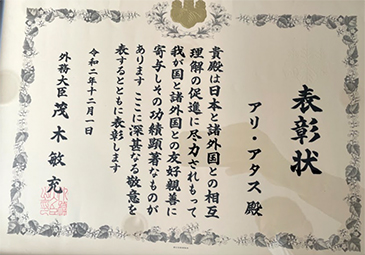 表彰状
アリ・アタス 殿
貴殿は日本と諸外国との相互
理解の促進に尽力されもって
我が国と諸外国との友好親善に
寄与しその功績顕著なものが
あります ここに深甚なる敬意を
表するとともに表彰します
令和二年十二月一日
外務大臣 茂木敏充